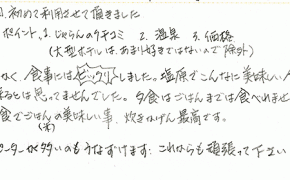 初めて利用させて頂きました
ポイント、1. じゃらんのクチコミ 2. 温泉 3. 価格
(大型ホテルは、あまり好きではないので除外)
なく、食事にはビックリしました。塩原でこんなに美味しい
とは思ってませんでした。夕食はごはんまでは食べれませ
食でごはん(米)の美味しい事、炊きかげん最高です。
ーターが多いのもうなずけます。これからも頑張って下さい